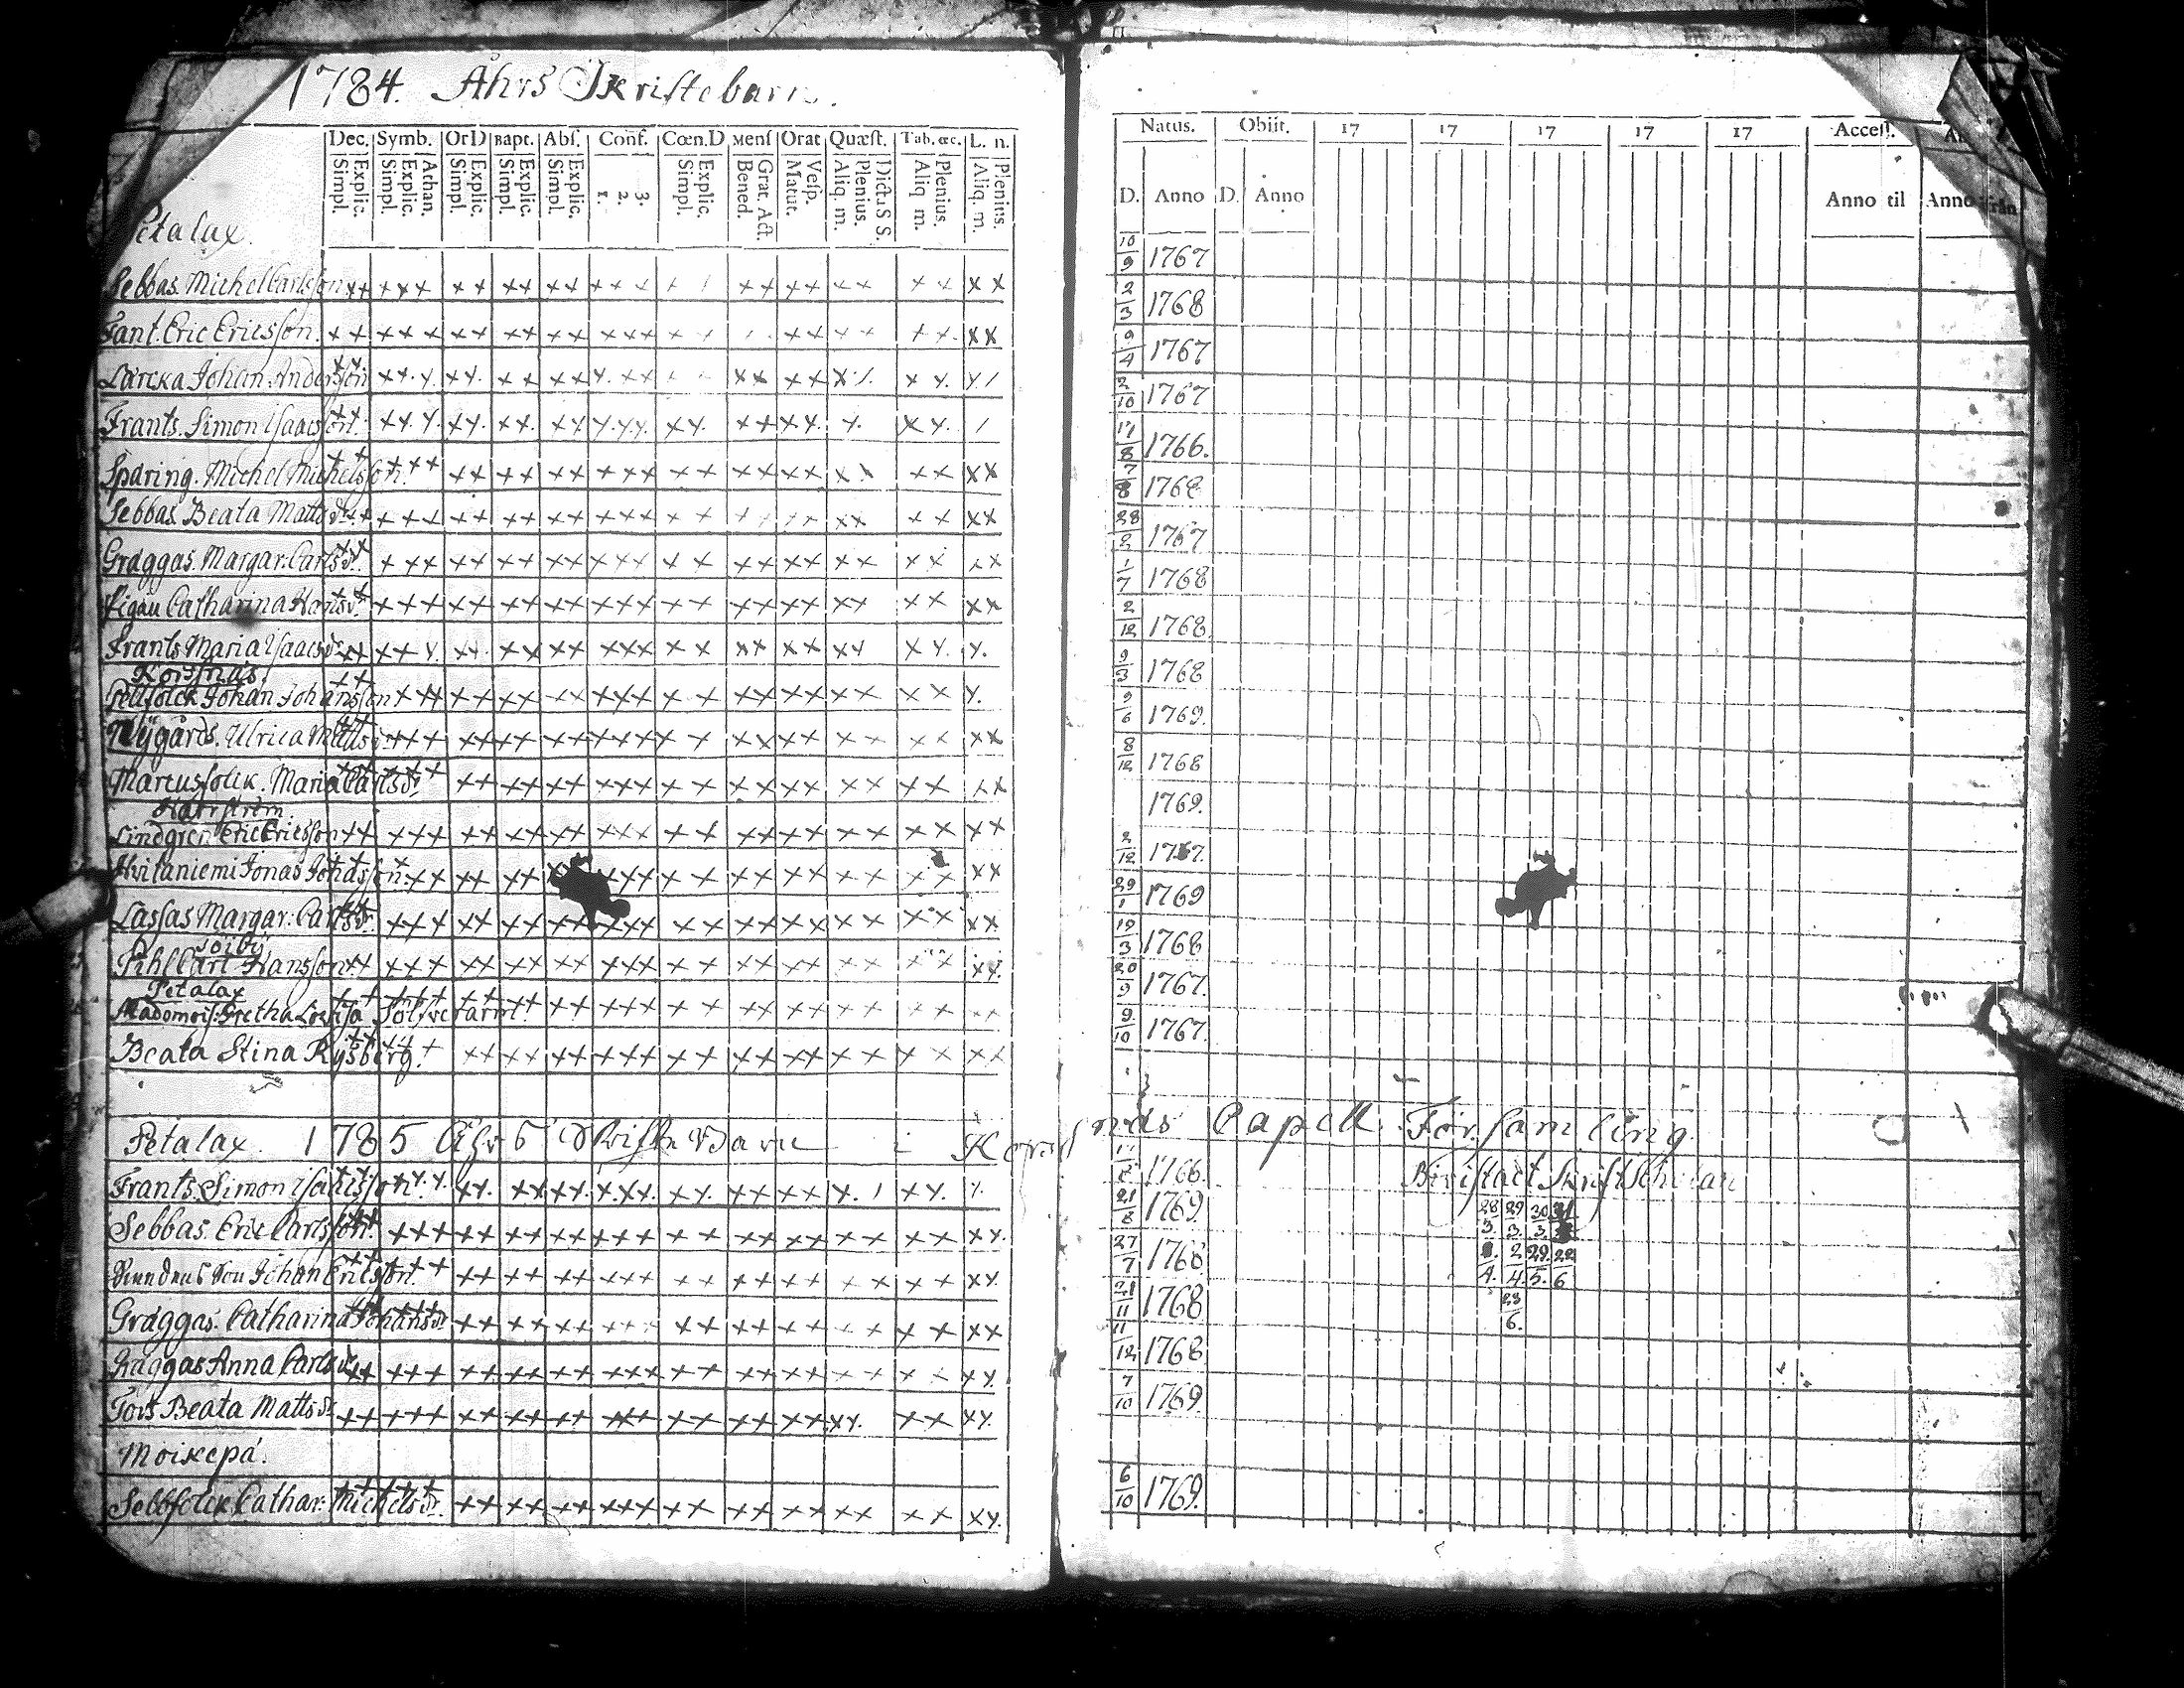 1784. Åhrs Skriftebarn.
Dec. Symb. Or D Bapt. Abs. Conf. Cœn. D Menſ Orat Quæſt. Tab. &c. L. n. Natus. Obiit. 17 17 17 17 17 Acceſſ.
Explic. Simpl. Athan. Explic. Simpl. Explic. Simpl. Explic. Simpl. Explic. Simpl. 3. 2. 1. Explic. Simpl. Grat. Act. Bened. Veſp. Matut. Dict. S S. Plenius. Aliq. m. Plenius. Aliq. m. Plenius. Aliq. m. D. Anno D. Anno Anno til Anno från
Petalax.
Sebbas. Michel Carlsson xx xxx xx xx xx xxx xx xx xx xx xx 10/9 1767
Fant. Eric Ericsson. xx xxx xx xx xx xxx xx xx xx xx 2/3 1768
Larcka Johan Andersson xx xx.y. xy. xx xx y.xx xx xx xy. 9/4 1767
Frants. Simon Isaacsson. xx xy.y. xy. xx. xy y.y.y. xy. xx xy. y. xy. / 2/10 1767
Sparing. Michel Michelsson. xx xxx xx xx xx xxx xx xx xx xx xx 17/8 1766.
Sebbas Beata Matts dr xx xxx xx xx xx xxx xx xx xx xx 7/8 1768
Graggas. Margar: Carls dr. xx xxx xx xx xx xxx xx xx xx xx xx xx 28/2 1767
Catharina Hans dr xx xxx xx xx xx xxx xx xx xx xx xx xx 1/7 1768
Frants Maria Isaacs dr xx xxy. xx. xx xx xxx xx xx xx xy xy. y. 2/12 1768.
Korssnäs.
Pellfolck Johan Johansson xx xxx xx xx xx xxx xx xx xx xx xx y. 9/3 1768
Nygårds. Ulrica Matts dr xx xxx xx xx xx xxx xx xx xx xx xx xx 9/6 1769.
Marcusfolck. Maria Carls dr xx xxx xx xx xx xxx xx xx xx xx xx xx 8/12 1768
Harrström.
Lindgren Eric Ericsson xx xxx xx xx xx xxx xx xx xx xx xx xx 1769.
Jonas xx xxx xx xx xx xxx xx xx xx xx xx xx 2/12 1767.
Lassas Margar: Carls dr. xx xxx xx xx xx xxx xx xx xx xx xx xx 29/1 1769
Töiby
Pihl Carl Hansson xx xxx xx xx xx xxx xx xx xx xx xx xy. 19/3 1768
Petalax
Madomois: Gretha Lovisa xx xxx xx xx xx xxx xx xx xx xx xx xx 20/9 1767.
Beata Stina Rysberg. xx xxx xx xx xx xxx xx xx xx xx xx xx 9/10 1767.
Petalax. 1785 Åhrs Skrifte Barn i Korssnäs Capell Församling.
Frants. Simon Isacsson. xx xy.y. xy. xx xy. xxy. xy. xx xx y. / xy. y. 1766.
Sebbas. Eric Carlsson. xx xxx xx xx xx xxx xx xx xx xx xx xy. 21/8 1769. 28/3. 29/3. 30/3. 31
Johan Ericsson. xx xxx xx xx xx xxx xx xx xx xx xx xy. 27/7 1768 /4. 2/4. 29./5. 22/6
Graggas. Catharina Johans dr xx xxx xx xx xx xxx xx xx xx xx xx xx 21/11 1768 23/6.
Graggas Anna Carls dr xx xxx xx xx xx xxx xx xx xx xx xx xy. 11/12 1768
Tors Beata Matts dr xx xxx xx xx xx xxx xx xx xx xy. xx xy. 7/10 1769.
Moikepä.
Sebbfolck Cathar: Michels dr. xx xxx xx xx xx xxx xx xx xx xx xx xy. 6/10 1769.